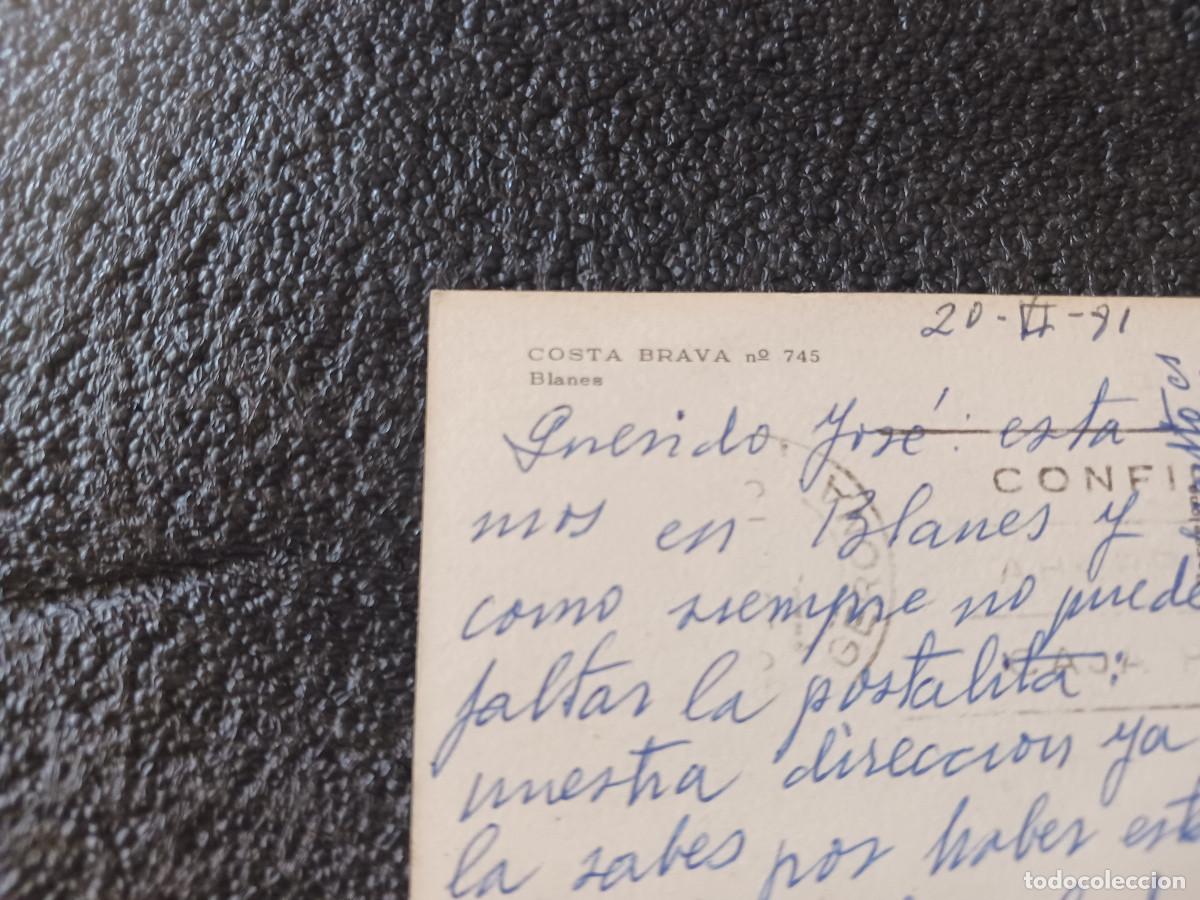 20-VI-91
COSTA BRAVA nº 745
Blanes
Querido José: esta
mos en Blanes y
como siempre no puede
faltar la postalita:
nuestra direccion ya
la sabes por haber est
CONFI
GERONA
CAJA
todocoleccion